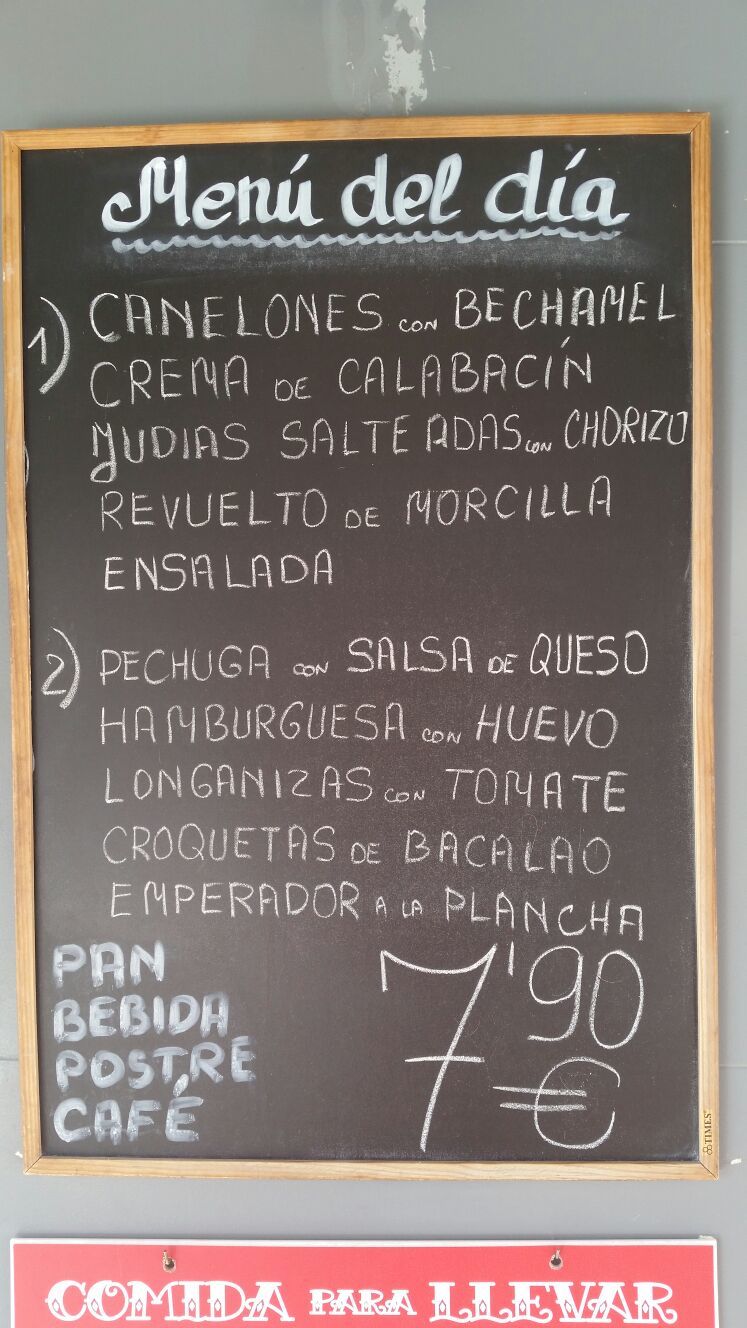 Menú del día
1) CANELONES CON BECHAMEL
CREMA DE CALABACÍN
JUDIAS SALTEADAS CON CHORIZO
REVUELTO DE MORCILLA
ENSALADA
2) PECHUGA CON SALSA DE QUESO
HAMBURGUESA CON HUEVO
LONGANIZAS CON TOMATE
CROQUETAS DE BACALAO
EMPERADOR A LA PLANCHA
PAN
BEBIDA
POSTRE
CAFÉ
7'90
€
TIMES
COMIDA PARA LLEVAR